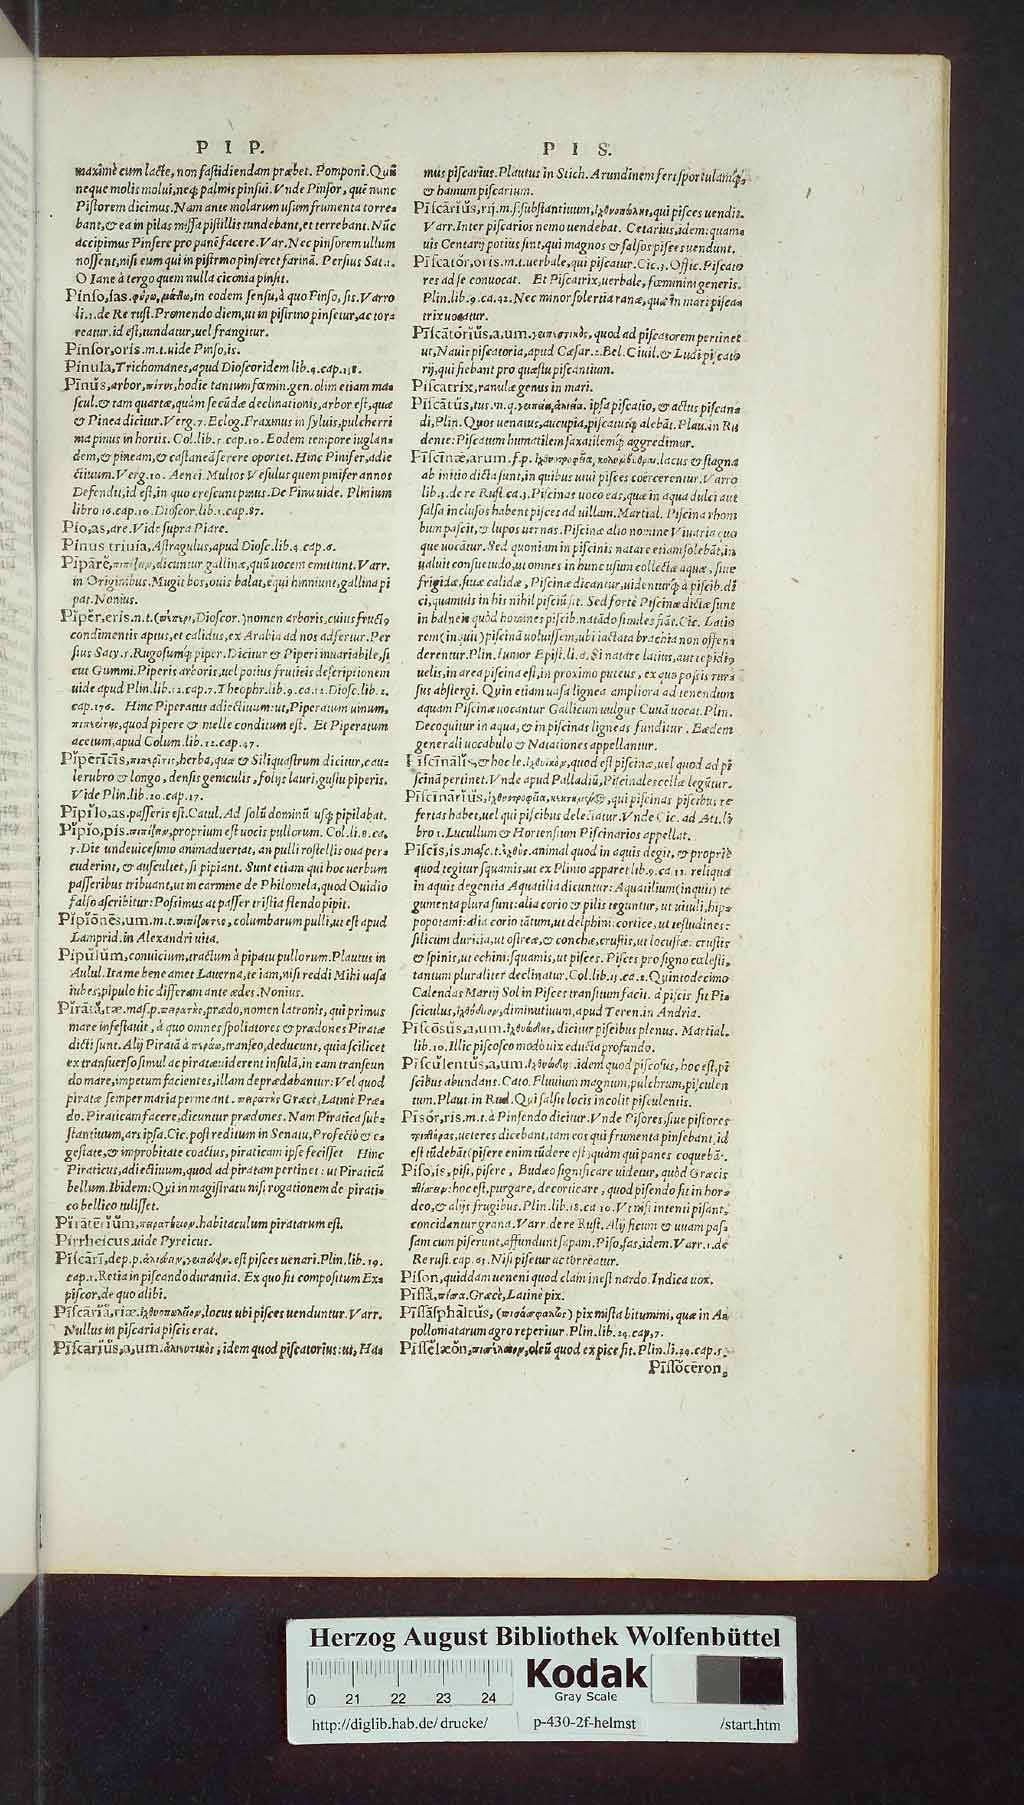 P I P.
maximè cum lacte, non fastidiendam præbet. Pomponi. Quũ
neque molis molui, neq; palmis pinsui. Vnde Pinsor, quẽ nunc
Pistorem dicimus. Nam ante molarum usum frumenta torre-
bant, & ea in pilas missa pistillis tundebant, et terrebant. Nũc
accipimus Pinsere pro panẽ facere. Var. Nec pinsorem ullum
nossent, nisi eum qui in pistrino pinseret farinã. Persius Sat. 1.
O Iane à tergo quem nulla ciconia pinsit.
Pinso, sas. in eodem sensu, à quo Pinso, sis. Varro
li. 1. de Re rust. Promendo diem, ut in pistrino pinsetur, ac tor-
reatur. id est, tundatur, uel frangitur.
Pinsor, oris. m. t. uide Pinso, is.
Pinula, Trichomanes, apud Dioscoridem lib. 4. cap. 138.
Pinŭs, arbor, πίτυς, hodie tantum fœmin. gen. olim etiam ma-
scul. & tam quartæ, quàm secũdæ declinationis, arbor est, quæ
& Pinea dicitur. Verg. 7. Eclog. Fraxinus in syluis, pulcherri
ma pinus in hortis. Col. lib. 5. cap. 10. Eodem tempore iuglan-
dem, & pineam, & castaneã serere oportet. Hinc Pinifer, adie
ctiuum. Verg. 10. Aenei. Multos Vesulus quem pinifer annos
Defendit, id est, in quo crescunt pinus. De Pinu uide. Plinium
libro 16. cap. 10. Dioscor. lib. 1. cap. 87.
Pio, as, are. Vide supra Piare.
Pinus triuia, Astragulus, apud Diosc. lib. 4. cap. 6.
Pipārĕ, dicuntur gallinæ, quũ uocem emittunt. Varr.
in Originibus. Mugit bos, ouis balat, equi hinniunt, gallina pi
pat. Nonius.
Pĭpĕr, eris. n. t. (πέπερι, Dioscor.) nomen arboris, cuius fructꝰ
condimentis aptus, et calidus, ex Arabia ad nos adfertur. Per
sius Saty. 5. Rugosumq́; piper. Dicitur & Piperi inuariabile, si
cut Gummi. Piperis arboris, uel potius fruticis descriptionem
uide apud Plin. lib. 12. cap. 7. Theophr. lib. 9. ca. 22. Diosc. lib. 2.
cap. 176. Hinc Piperatus adiectiuum: ut, Piperatum uinum,
quod pipere & melle conditum est. Et Piperatum
acetum, apud Colum. lib. 12. cap. 47.
Pĭpĕrītĭs, πιπερίτις, herba, quæ & Siliquastrum dicitur, cau-
le rubro & longo, densis geniculis, folijs lauri, gustu piperis.
Vide Plin. lib. 20. cap. 17.
Pīpĭlo, as. passeris est. Catul. Ad solũ dominũ usq; pipilabat.
Pīpĭo, pis. proprium est uocis pullorum. Col. li. 8. ca.
5. Die undeuicesimo animaduertat, an pulli rostellis oua per-
cuderint, & auscultet, si pipiant. Sunt etiam qui hoc uerbum
passeribus tribuant, ut in carmine de Philomela, quod Ouidio
falso ascribitur: Possimus at passer tristia flendo pipit.
Pīpĭōnēs, um. m. t. columbarum pulli, ut est apud
Lamprid. in Alexandri uita.
Pīpŭlŭm, conuicium, tractum à pipatu pullorum. Plautus in
Aulul. Ita me bene amet Lauerna, te iam, nisi reddi Mihi uasa
iubes, pipulo hic differam ante ædes. Nonius.
Pīrātă, tæ. mas. p. πειρατὴς, prædo, nomen latronis, qui primus
mare infestauit, à quo omnes spoliatores & prædones Piratæ
dicti sunt. Alij Piratã à transeo, deducunt, quia scilicet
ex transuerso simul ac piratæ uiderent insulã, in eam transeun
do mare, impetum facientes, illam deprædabantur: Vel quod
piratæ semper maria permeant. πειρατὴς Græcè, Latinè Præ-
do. Piraticam facere, dicuntur prædones. Nam Piratica sub-
stantiuum, ars ipsa. Cic. post reditum in Senatu, Profectò & e-
gestate, & improbitate coactus, piraticam ipse fecisset Hinc
Piraticus, adiectiuum, quod ad piratam pertinet: ut Piraticũ
bellum. Ibidem: Qui in magistratu nisi rogationem de pirati-
co bellico tulisset.
Pīrātērĭŭm, habitaculum piratarum est.
Pirrheicus. uide Pyreicus.
Pīscārĭ, dep. p. est pisces uenari. Plin. lib. 19.
cap. 1. Retia in piscando durantia. Ex quo fit compositum Ex-
piscor, de quo alibi.
Pīscārĭă, riæ. locus ubi pisces uenduntur. Varr.
Nullus in piscaria piscis erat.
Pīscārĭŭs, a, um. ἁλιευτικὸς, idem quod piscatorius: ut, Ha-
P I S.
mus piscarius. Plautus in Stich. Arundinem fert sportulamq́;,
& hamum piscarium.
Pīscārĭŭs, rij. m. s. substantiuum, ἰχθυοπώλης, qui pisces uendit.
Varr. Inter piscarios nemo uendebat. Cetarius, idem: quam-
uis Centarij potius sint, qui magnos & salsos pisces uendunt.
Pīscātŏr, oris. m. t. uerbale, qui piscatur. Cic. 3. Offic. Piscato
res ad se conuocat. Et Piscatrix, uerbale, fœminini generis.
Plin. lib. 9. ca. 42. Nec minor solertia ranæ, quæ in mari pisca-
trix uocatur.
Pīscātōrĭŭs, a, um. quod ad piscatorem pertinet
ut, Nauis piscatoria, apud Cæsar. 2. Bel. Ciuil. & Ludi piscato
rij, qui fiebant pro quæstu piscantium.
Piscatrix, ranulæ genus in mari.
Pīscātŭs, tus. m. q. ipsa piscatio, & actus piscan-
di, Plin. Quos uenatus, aucupia, piscatusq́; alebãt. Plau. in Ru
dente: Piscatum hamatilem saxatilemq́; aggredimur.
Pīscīnæ, arum. f. p. lacus & stagna
ab initio dicta sunt, in quibus uiui pisces coercerentur. Varro
lib. 3. de re Rust. ca. 3. Piscinas uoco eas, quæ in aqua dulci aut
salsa inclusos habent pisces ad uillam. Martial. Piscina rhom
bum pascit, & lupos uernas. Piscinæ alio nomine Viuaria quo
que uocãtur. Sed quoniam in piscinis natare etiam solebãt, in
ualuit consuetudo, ut omnes in hunc usum collectæ aquæ, siue
frigidæ, siue calidæ, Piscinæ dicantur, uidenturq́; à piscib. di
ci, quamuis in his nihil pisciũ sit. Sed fortè Piscinæ dictæ sunt
in balneis quòd homines piscib. natãdo similes fiãt. Cic. Latio
rem (inquit) piscinã uoluissem, ubi iactata brachia non offen
derentur. Plin. Iunior Epist. li. 6. Si natare latius, aut tepidiꝰ
uelis, in area piscina est, in proximo puteus, ex quo possis rur-
sus abstergi. Quin etiam uasa lignea ampliora ad tenendum
aquam Piscinæ uocantur Gallicum uulgus Cuuã uocat. Plin.
Decoquitur in aqua, & in piscinas ligneas funditur. Eædem
generali uocabulo & Natationes appellantur.
Pīscīnālĭs, & hoc le. quod est piscinæ, uel quod ad pi
scinã pertinet. Vnde apud Palladiũ, Piscinales cellæ legũtur.
Pīscīnārĭŭs, qui piscinas piscibus re
fertas habet, uel qui piscibus delectatur. Vnde Cic. ad Att. li
bro 1. Lucullum & Hortensium Piscinarios appellat.
Pīscĭs, is. masc. t. ἰχθὺς. animal quod in aquis degit, & propriè
quod tegitur squamis, ut ex Plinio apparet lib. 9. ca. 12. reliqua
in aquis degentia Aquatilia dicuntur: Aquatilium (inquit) te
gumenta plura sunt: alia corio & pilis teguntur, ut uituli, hip-
popotami: alia corio tãtum, ut delphini: cortice, ut testudines:
silicum duritia, ut ostreæ, & conchæ, crustis, ut locustæ: crustis
& spinis, ut echini: squamis, ut pisces. Pisces pro signo cælesti,
tantum pluraliter declinatur. Col. lib. 11. ca. 2. Quintodecimo
Calendas Martij Sol in Pisces transitum facit. à piscis fit Pi-
sciculus, ἰχθύδιον, diminutiuum, apud Teren. in Andria.
Pīscōsŭs, a, um. ἰχθυώδης, dicitur piscibus plenus. Martial.
lib. 10. Illic piscoso modò uix educta profundo.
Pīscŭlentŭs, a, um. ἰχθυώδης. idem quod piscosus, hoc est, pi
scibus abundans. Cato. Fluuium magnum, pulchrum, pisculen
tum. Plaut. in Rud. Qui salsis locis incolit pisculentis.
Pīsŏr, ris. m. t. à Pinsendo dicitur. Vnde Pisores, siue pistores
ueteres dicebant, tam eos qui frumenta pinsebant, id
est tũdebãt (pisere enim tũdere est) quàm qui panes coquebãt.
Piso, is, pisi, pisere, Budæo significare uidetur, quòd Græcis
πτίσσειν: hoc est, purgare, decorticare, quod pisendo fit in hor-
deo, & alijs frugibus. Plin. lib. 18. ca 10. Vt nisi intenti pisant,
concidantur grana. Varr. de re Rust. Alij ficum & uuam pas-
sam cum piserunt, affundunt sapam. Piso, sas, idem. Varr. 1. de
Re rust. cap. 63. Nisi pisetur ac torreatur.
Pison, quiddam ueneni quod clam inest nardo. Indica uox.
Pīssă, πίσσα. Græcè, Latinè pix.
Pīssāsphāltŭs, (πισσάσφαλτος) pix mista bitumini, quæ in A-
polloniatarum agro reperitur. Plin. lib. 24. cap. 7.
Pīssĕlæŏn, πισσέλαιον, oleũ quod ex pice fit. Plin. li. 24. cap. 5.
Pīssŏcēron,
Herzog August Bibliothek Wolfenbüttel
0 21 22 23 24
Kodak
Gray Scale
http://diglib.hab.de/drucke/ p-430-2f-helmst /start.htm